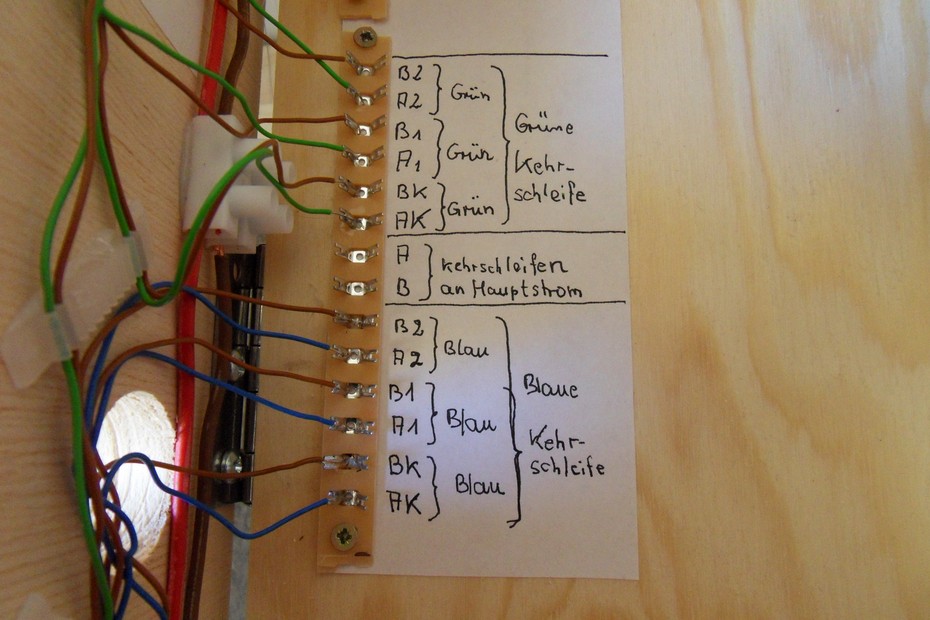 B2
A2
Grün
B1
A1
Grün
BK
AK
Grün
Grüne
Kehr-
schleife
A
B
Kehrschleifen
an Hauptstrom
B2
A2
Blau
B1
A1
Blau
BK
AK
Blau
Blaue
Kehr-
schleife